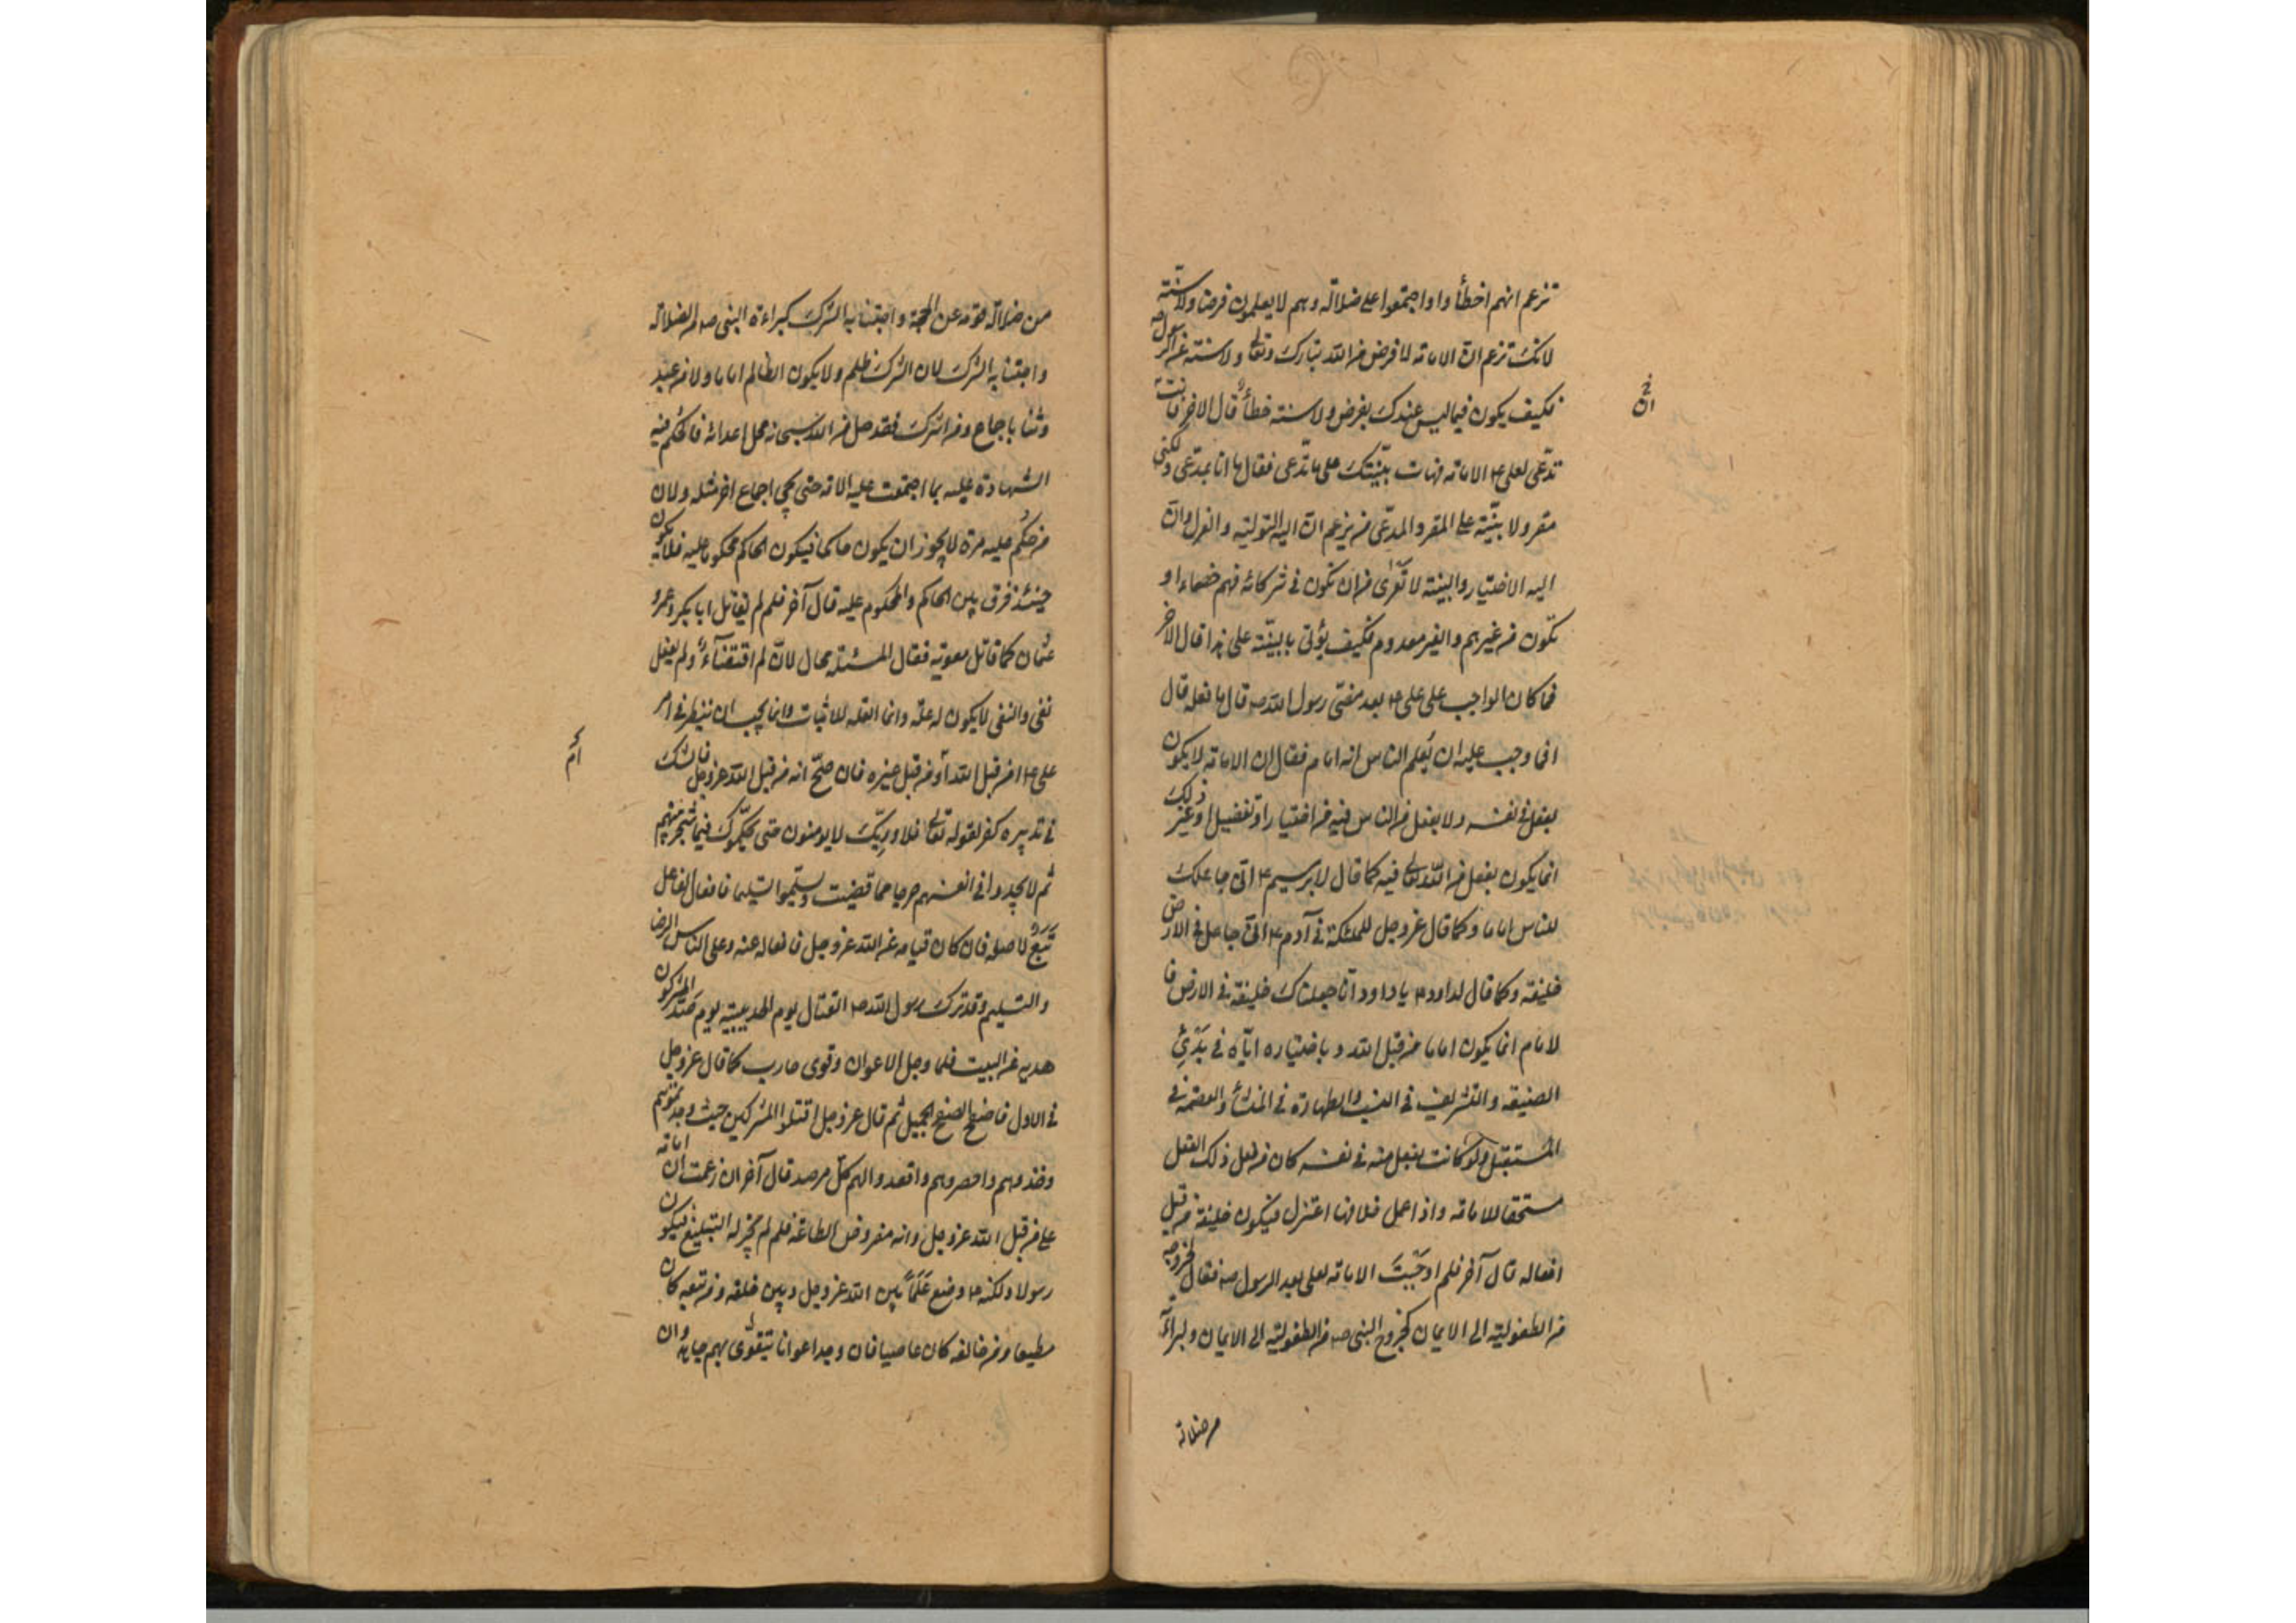 تزعم انهم اخطأوا واجتمعوا على ضلالة وهم لا يعلمون فرضا ولا سنة
لانك تزعم ان الامامة لا فرض من الله تبارك وتعالى ولا سنة من الرسول ص
فكيف يكون فيما ليس عندك بفرض ولا سنة خطأ قال الاخر فانت
تدّعى لعلى ع الامامة فهات بيّنتك على ما تدّعى فقال ما انا بمدّعى ولكنى
مقر ولا بيّنة على المقر والمدّعى من يزعم ان اليه التولية والعزل وان
اليه الاختيار والبينة لا تعرى من ان تكون فى شركائه فهم خصماء او
تكون من غيرهم والغير معدوم فكيف يؤتى بالبيّنة على هذا قال الآخر
فما كان الواجب على على ع بعد مضى رسول الله ص قال ما فعله قال
افما وجب عليه ان يُعلم الناس انه امام فقال ان الامامة لا يكون
بفعل فى نفسه ولا بفعل من الناس فيه من اختيار او تفضيل او غير ذلك
انما يكون بفعل من الله تعالى فيه كما قال لابرهيم ع انى جاعلك
للناس اماما وكما قال عز وجل للملئكة فى آدم ع انى جاعل فى الارض
خليفة وكما قال لداود ع يا داود انا جعلناك خليفة فى الارض فا
لامام انما يكون اماما من قبل الله وباختياره اياه فى بدئ
الصنيعه والتشريف فى النسب والطهارة فى المنشأ والعصمة فى
المستقبل ولو كانت بفعل منه فى نفسه كان من فعل ذلك الفعل
مستحقا للامامة واذا عمل خلافها اعتزل فيكون خليفة من قبل
افعاله قال آخر فلم اوجبت الامامة لعلى بعد الرسول ص فقال لخروجه
من الطفولية الى الايمان كخروج النبى ص من الطفولية الى الايمان ولبراءته
من ضلالة
ان
من ضلالة قومه عن الحجة واجتنابه الشرك كبراءة النبى ص من الضلالة
واجتنابه الشرك لان الشرك ظلم ولا يكون الظالم اماما ولا من عبد
وثنا باجماع ومن اشرك فقد حل من الله سبحانه محل اعدائه فالحكم فيه
الشهادة عليه بما اجتمعت عليه الامة حتى يجئ اجماع اخر مثله ولان
من حُكم عليه مرة لا يجوز ان يكون حاكما فيكون الحاكم محكوما عليه فلا يكون
حينئذ فرق بين الحاكم والمحكوم عليه قال آخر فلم لم يقاتل ابا بكر وعمر و
عثمان كما قاتل معوية فقال المسئلة محال لان لم اقتضاء ولم يفعل
نفى والنفى لا يكون له علّة وانما العلة للاثبات وانما يجب ان ينظر فى امر
على ع امن قبل الله أو من قبل غيره فان صحّ انه من قبل الله عز وجل فالشك
فى تدبيره كفر لقوله تعالى فلا وربّك لا يومنون حتى يحكّموك فيما شجر بينهم
ثم لا يجدوا فى انفسهم حرجا مما قضيت ويسلّموا تسليما فافعال الفاعل
تبع لاصله فان كان قيامه عن الله عز وجل فافعاله عنه وعلى الناس الرضا
والتسليم وقد ترك رسول الله ص القتال يوم الحديبية يوم صدّ المشركون
هديه عن البيت فلما وجد الاعوان وقوى حارب كما قال عز وجل
فى الاول فاصفح الصفح الجميل ثم قال عز وجل اقتلوا المشركين حيث وجدتموهم
وخذوهم واحصروهم واقعدوا لهم كلّ مرصد قال آخر ان زعمت ان امامة
على من قبل الله عز وجل وانه مفروض الطاعة فلم لم يجز له التبليغ فيكون
رسولا ولكنه ع وضع عَلَماً بين الله عز وجل وبين خلقه ومن تبعه كان
مطيعا ومن خالفه كان عاصيا فان وجد اعوانا يتقوّى بهم جاهد وان